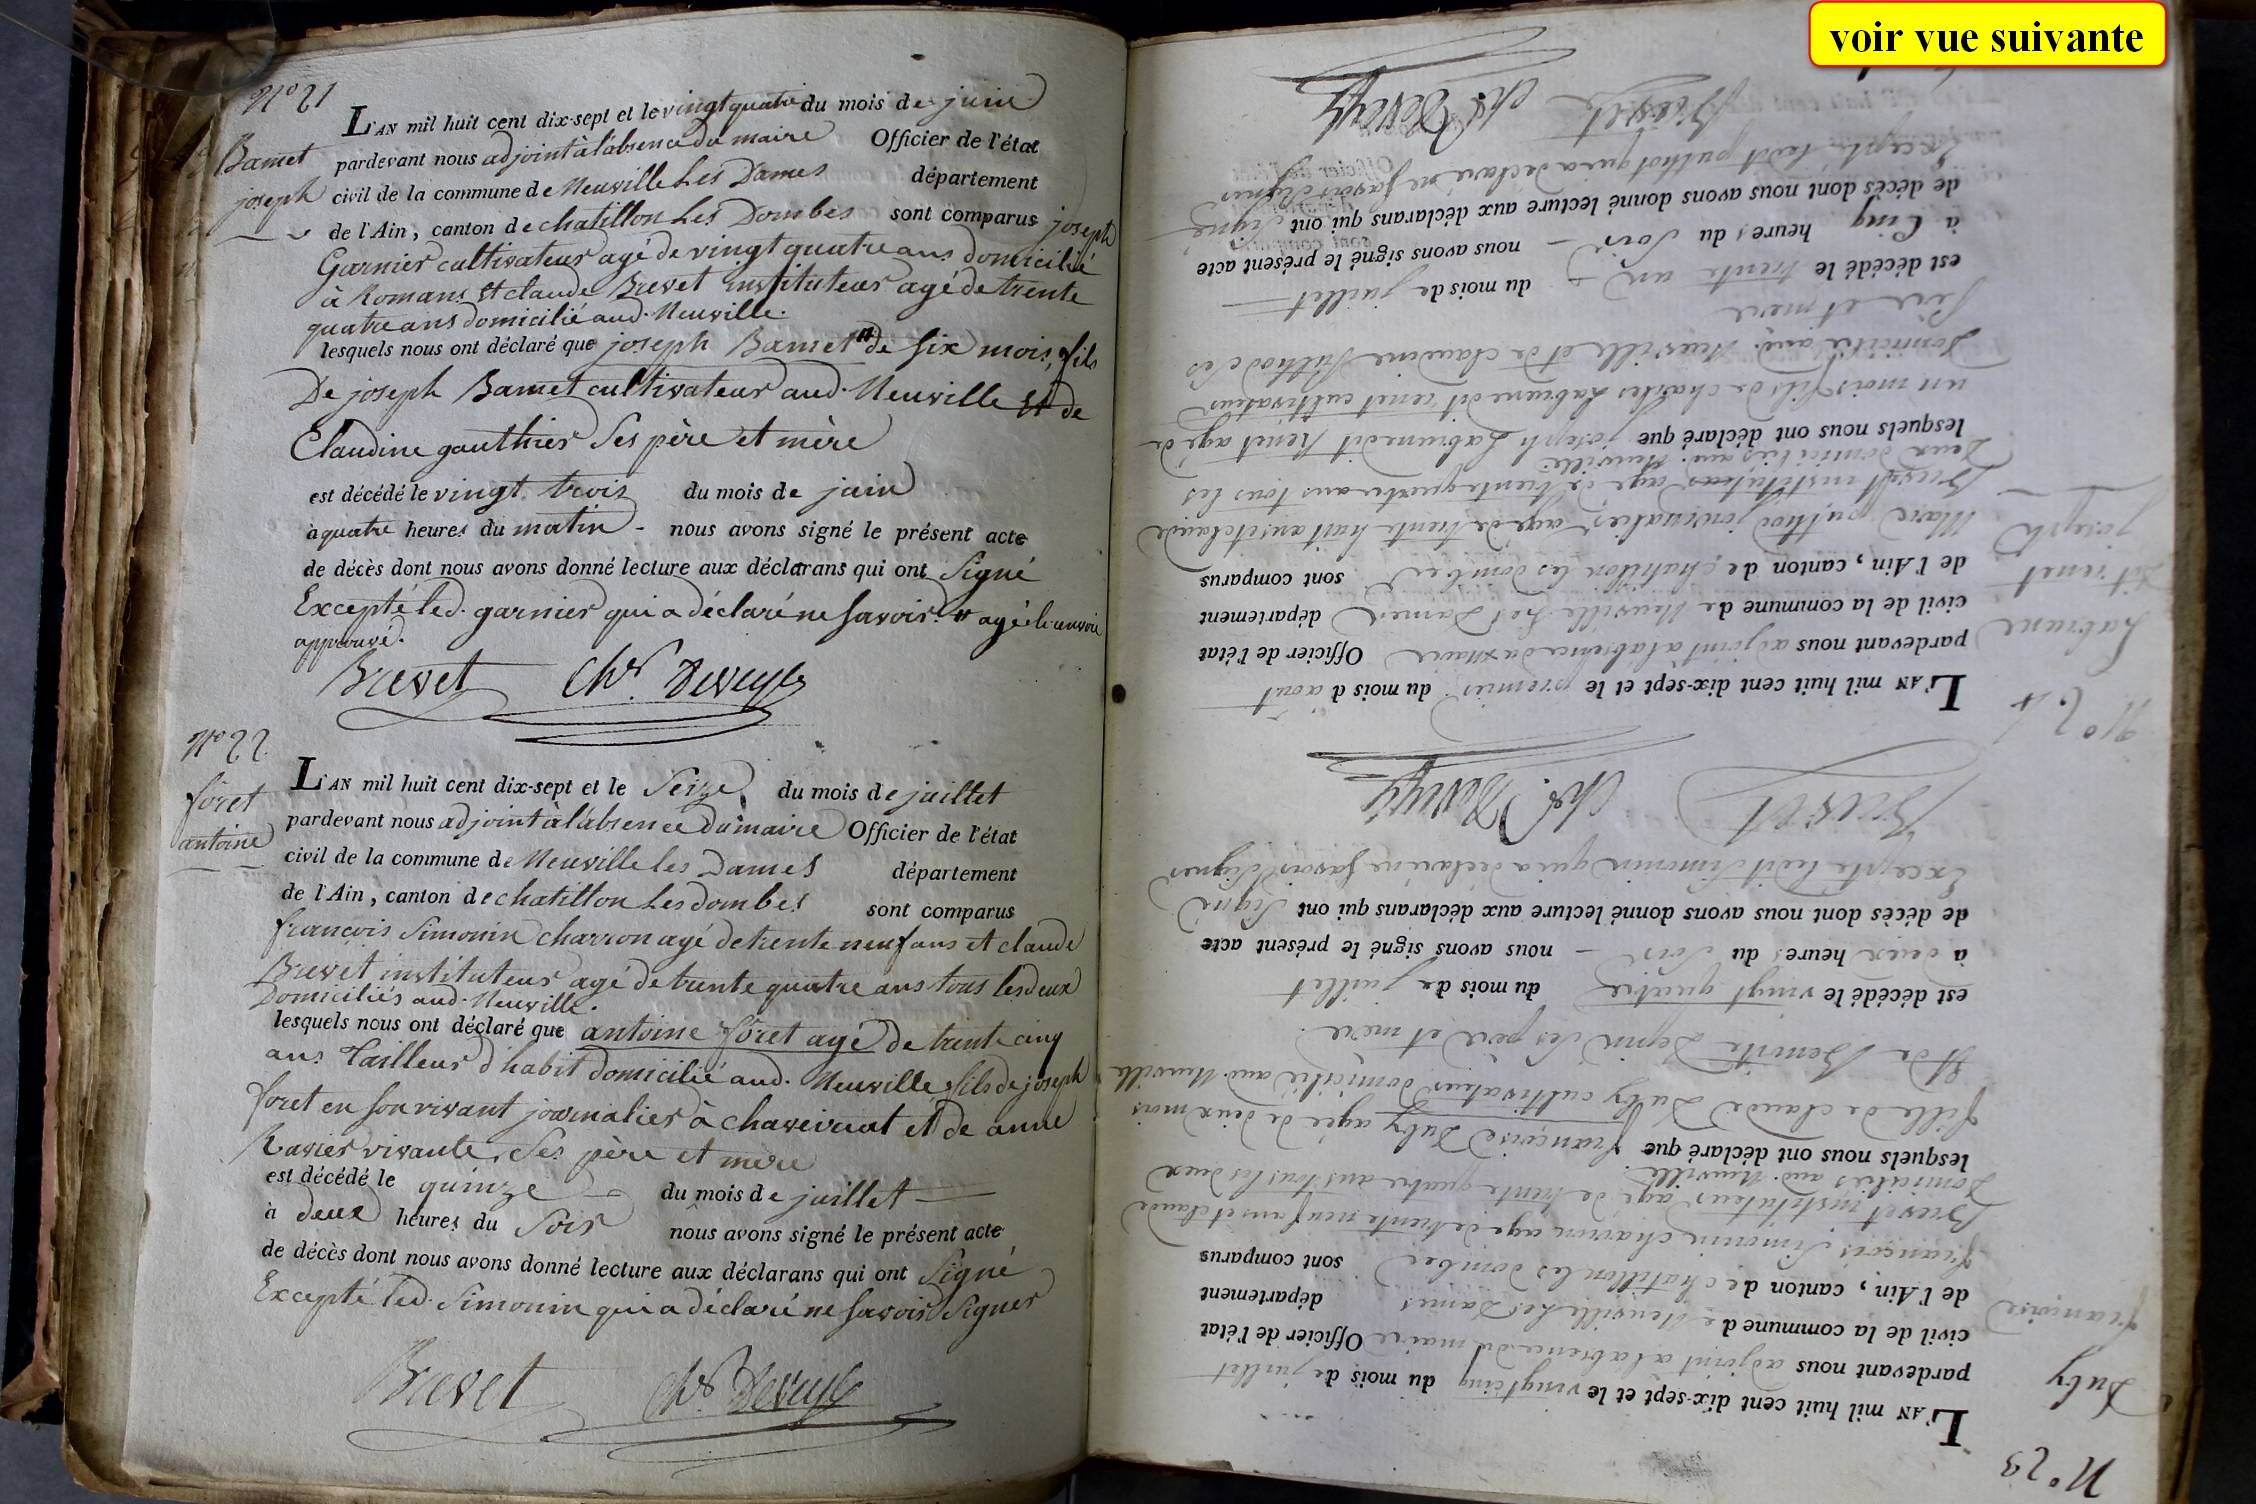 voir vue suivante
N.º 21
Bamet
joseph
L'AN mil huit cent dix-sept et le vingt quatre du mois de juin
pardevant nous adjoint à l'absence du maire Officier de l'état
civil de la commune de Neuville Les Dames département
de l'Ain, canton de chatillon Les Dombes sont comparus joseph
Garnier cultivateur agé de vingt quatre ans domicilié
à Romans Et claude Brevet instituteur agé de trente
quatre ans domicilié aud. Neuville.
lesquels nous ont déclaré que joseph Bamet # de six mois, fils
De joseph Bamet cultivateur aud. Neuville Et de
Claudine gauthier Ses père et mère
est décédé le vingt trois du mois de juin
à quatre heures du matin - nous avons signé le présent acte
de décès dont nous avons donné lecture aux déclarans qui ont Signé
Excepté led. garnier qui a déclaré ne savoir. # agé le renvoi
approuvé.
Brevet Chs. Deveyle
N.º 22
foret
antoine
L'AN mil huit cent dix-sept et le Seize du mois de juillet
pardevant nous adjoint à l'absence du maire Officier de l'état
civil de la commune de Neuville les Dames département
de l'Ain, canton de chatillon Les dombes sont comparus
françois Simonin charron agé de trente neuf ans Et claude
Brevet instituteur agé de trente quatre ans tous les deux
Domiciliés aud. Neuville.
lesquels nous ont déclaré que antoine foret agé de trente cinq
ans Tailleur d'habit domicilié aud. Neuville, fils de joseph
foret en son vivant journalier à chaveiriat et de anne
Ravier vivante, Ses père et mère
est décédé le quinze du mois de juillet
à deux heures du Soir nous avons signé le présent acte
de décès dont nous avons donné lecture aux déclarans qui ont Signé
Excepté led. Simonin qui a déclaré ne savoir Signer
Brevet Chs. Deveyle
N.º 23
Duby
françoise
L'AN mil huit cent dix-sept et le vingt cinq du mois de juillet
pardevant nous adjoint a l'absence du maire Officier de l'état
civil de la commune de Neuville Les Dames département
de l'Ain, canton de chatillon les dombes sont comparus
françois Simonin charron agé de trente neuf ans et claude
Brevet instituteur agé de trente quatre ans tous les deux
Domiciliés aud. Neuville.
lesquels nous ont déclaré que françoise Duby agée de deux mois
fille de claude Duby cultivateur domicilié aud. Neuville
Et de Benoite Ses père et mère.
est décédé le vingt quatre du mois de juillet
à deux heures du Soir - nous avons signé le présent acte
de décès dont nous avons donné lecture aux déclarans qui ont Signé
Excepté ledit Simonin qui a déclaré ne savoir Signer
Brevet Chs. Deveyle
N.º 24
Labrune
dit renet
joseph
L'AN mil huit cent dix-sept et le premier du mois d'aout
pardevant nous adjoint a l'absence du Maire Officier de l'état
civil de la commune de Neuville Les Dames département
de l'Ain, canton de chatillon les dombes sont comparus
Marc puthod journalier agé de trente huit ans et claude
Brevet instituteur agé de trente quatre ans tous les
Deux domiciliés aud. Neuville.
lesquels nous ont déclaré que joseph Labrune dit Renet agé de
un mois fils de charles Labrune dit renet cultivateur
Domicilié aud. Neuville et de claudine Puthod Ses
Père et mere
est décédé le trente un du mois de juillet
à Cinq heures du Soir - nous avons signé le présent acte
de décès dont nous avons donné lecture aux déclarans qui ont Signé
Excepté ledit puthod qui a déclaré ne savoir Signer
Brevet Chs. Deveyle